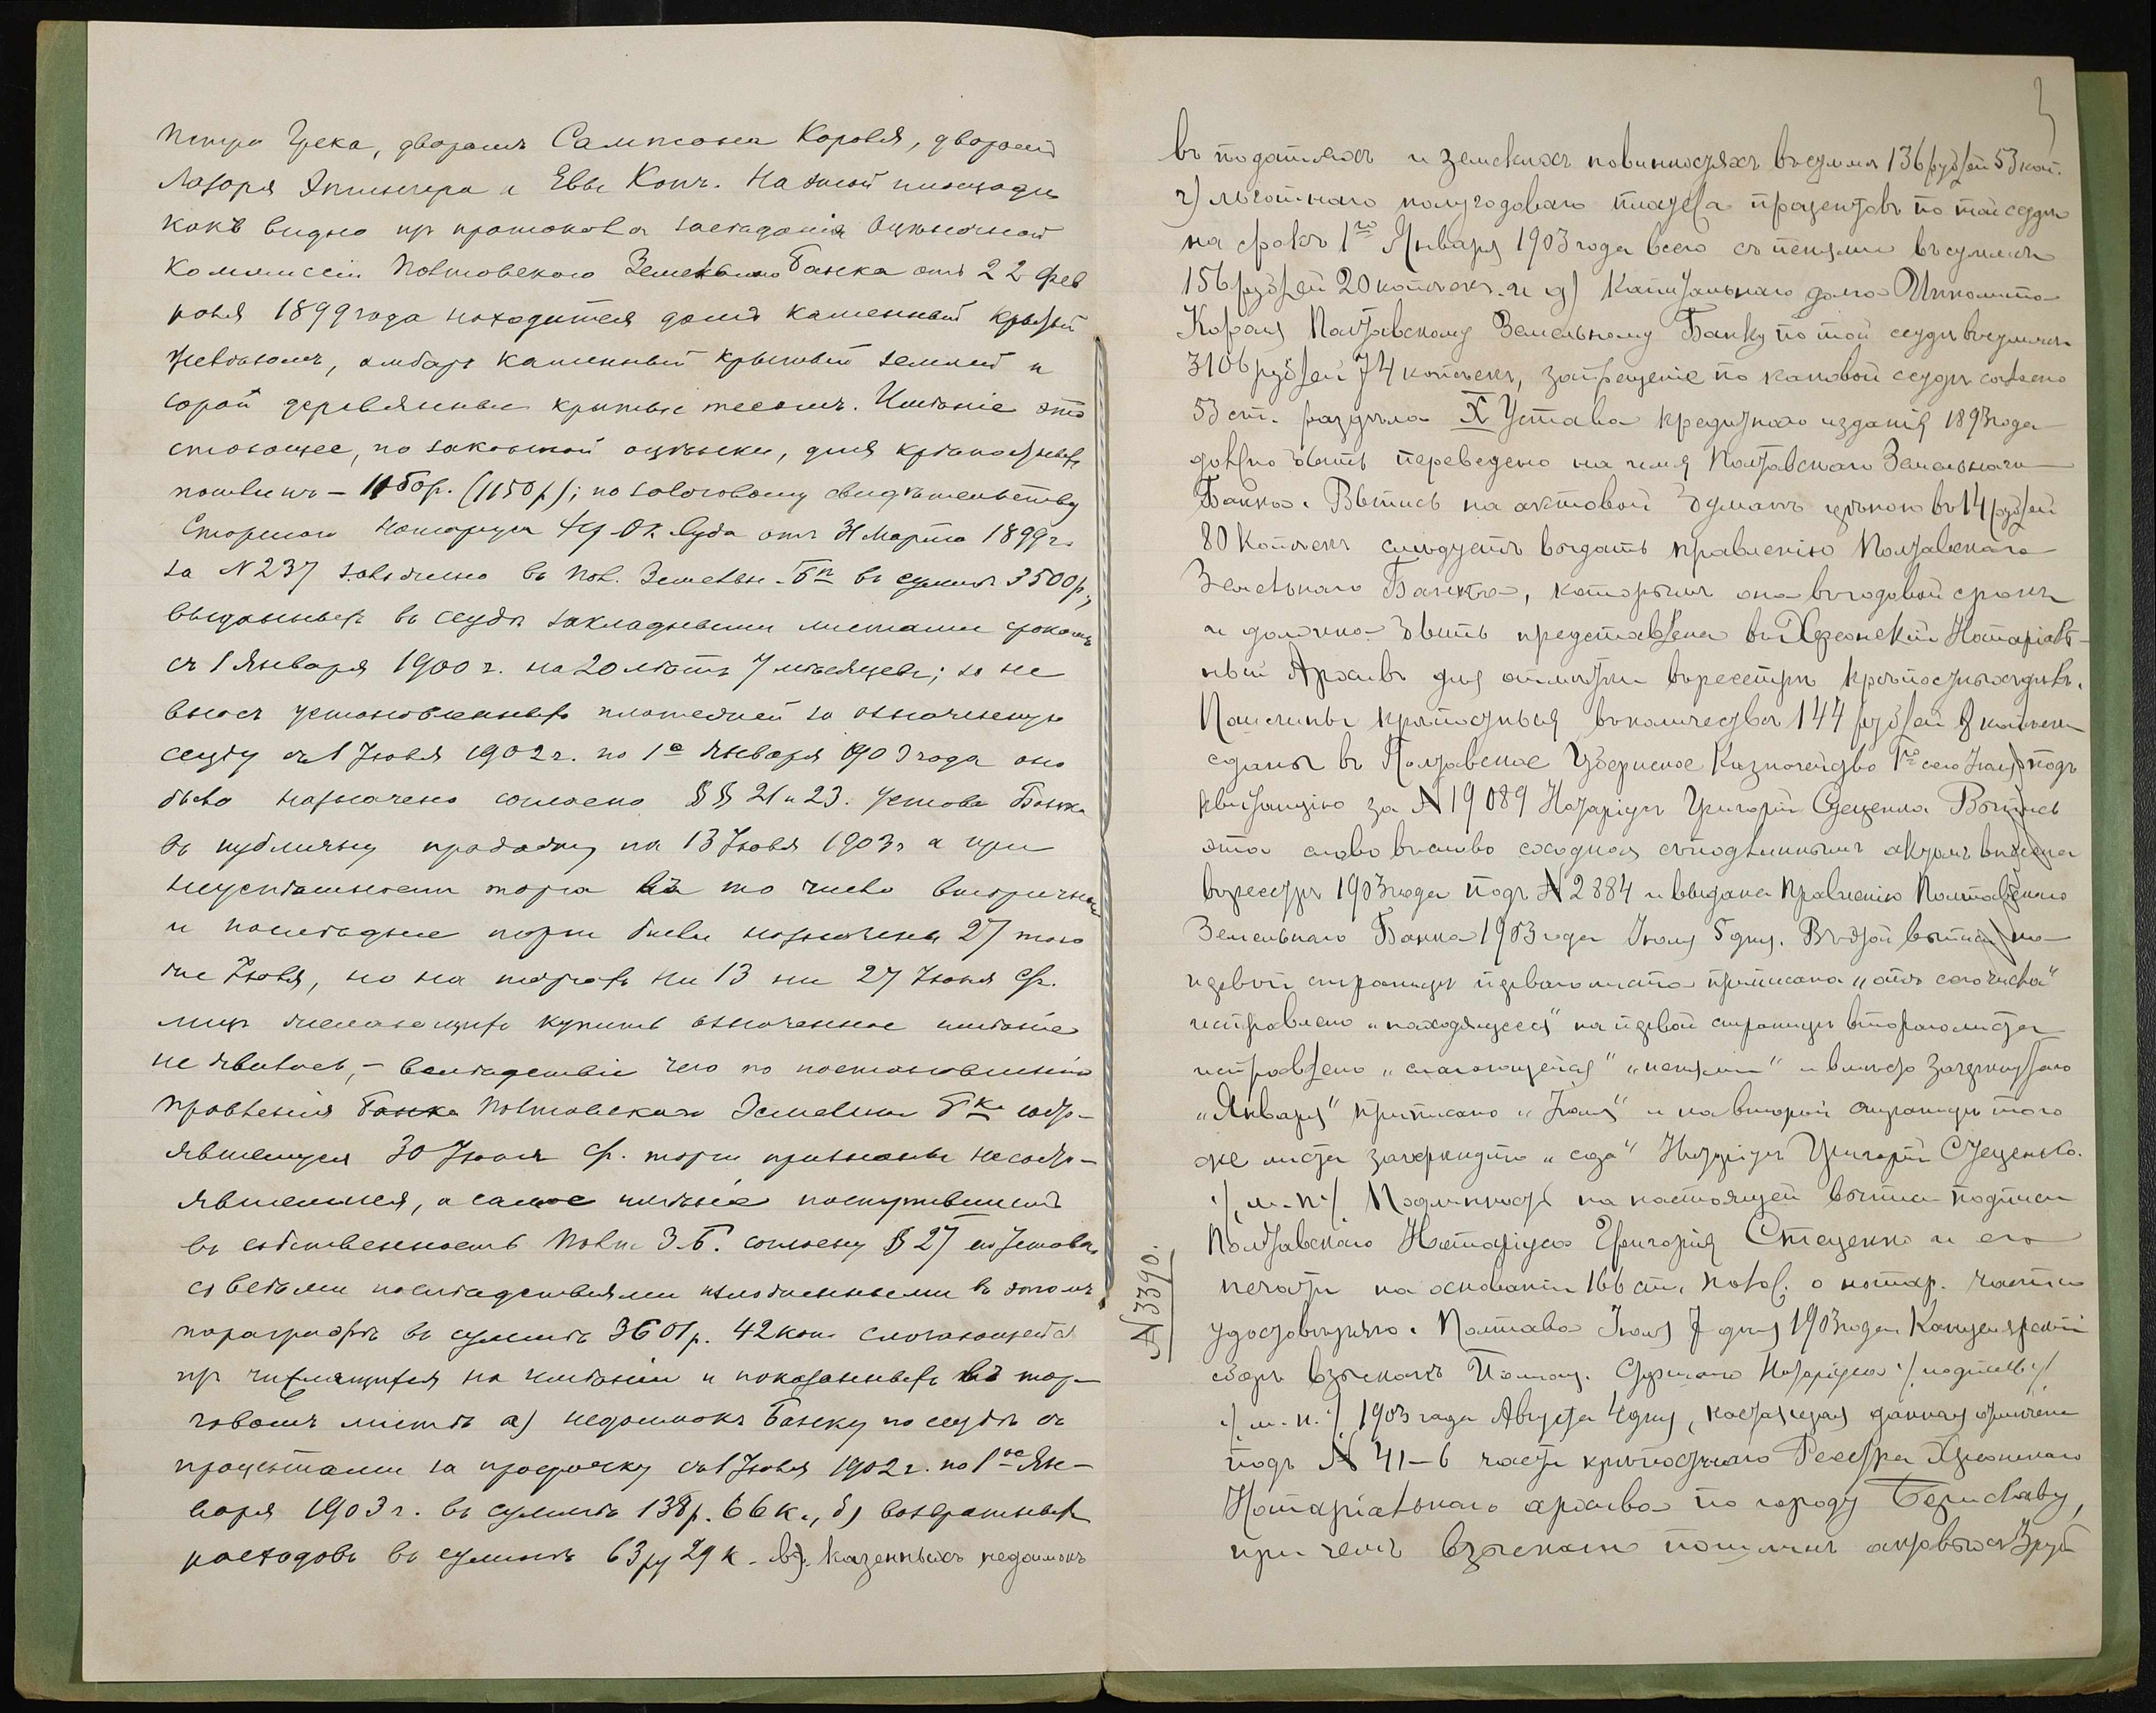 Петра Грека, дворянъ Сампсона Короля, дворянъ
Лазаря Эппингера и Евы Копъ. На дикой площади
какъ видно изъ протокола заседанія Оцѣночной
Коммиссіи Полтавскаго Земельнаго Банка отъ 22 Фев
раля 1899 года находится домъ каменный крытый
желѣзомъ, амбаръ каменный крытый землей и
сарай деревянный крытые тесомъ. Имѣніе это
стоющее, по законной оцѣнки, для крѣпостныхъ
пошлинъ – 1150р. (1150р.); по залоговому свидѣтельству
Старшаго Нотаріуса Хер. Ок. Суда отъ 31 Марта 1899 г.
за № 237 заложено въ Пол. Земельн. Бкѣ въ суммѣ 3500р.,
выданныхъ въ ссуду закладными листами срокомъ
съ 1 Января 1900 г. на 20 лѣтъ 7 мѣсяцевъ; за не
вносъ установленныхъ платежей за означенную
ссуду съ 1 Іюля 1902 г. по 1е Января 1903 года оно
было назначено согласно §§ 21 и 23. Устава Банка
въ публичну продажу на 13 Іюня 1903 г а при
неуспѣшности торга въ то число вторичные
и послѣдніе торги были назначены 27 того
же Іюня, но на торгахъ ни 13 ни 27 Іюня с/г.
лицъ желающихъ купить означенное имѣніе
не явилось, – вслѣдствіе чего по постановленію
Правленія Банка Полтавскаго Земельна Бка состо-
явшемуся 30 Іюня с/г. торги признаны несосто-
явшимися, а самое имѣніе поступившимъ
въ собственность Полт. З.Б. согласну § 27 его Устава
со всѣми послѣдствіями изложенными въ этомъ
параграфѣ въ суммѣ 3601р. 42 коп. слогающейся
изъ числящихся на имѣніи и показанныхъ въ тор-
говомъ листѣ а) недоимокъ Банку по ссудѣ съ
процентами за просрочку съ 1 Іюля 1902 г. по 1ое Ян-
варя 1903 г. въ суммѣ 138р. 66 к., б) возвратныхъ
расходовъ въ суммѣ 63 ру 29 к. в). казенныхъ недоимокъ
въ податяхъ и земскихъ повинностяхъ въ суммѣ 136 рублей 53 коп.
г) льготнаго полугодоваго платежа процентовъ по той ссудѣ
на срокъ 1го Января 1903 года всего съ пенями въ суммѣ
156 рублей 20 копѣекъ. и д) Капитальнаго долга
Короля Полтавскому Земельному Банку по той ссудѣ въ суммѣ
3106 рублей 74 копѣекъ, запрещеніе по каковой ссудѣ согласно
53 ст. раздѣла X Устава кредитнаго изданія 1893 года
должно быть переведено на имя Полтавскаго Земельнаго
Банка. Выпись на актовой бумагѣ цѣною въ 14 рублей
80 Копѣекъ слѣдуетъ выдать правленію Полтавскаго
Земельнаго Банка, которымъ она въ годовой срокъ
и должна быть представлена въ Херсонскій Нотаріаль-
ный Архивъ для отмѣтки въ реестрѣ крѣпостныхъ дѣлъ.
Пошлины крѣпостныя въ количествѣ 144 рублей 8 копѣекъ
сданы въ Полтавское Губернское Казначейство 1го сего Іюля подъ
квитанцію за № 19089 Нотаріусъ Григорій Стеценко Выпись
эта слово въ слово сходная съ подлиннымъ актомъ внесена
въ реестръ 1903 года подъ № 2884 и выдана Правленію Полтавскаго
Земельнаго Банка 1903 года Іюля 5 дня. Въ этой выписи на
первой страницѣ перваго листа приписана „отъ сего числа“
исправлено „находящееся“ на первой страницѣ втораго листа
исправлено „слагающейся“ „пенями“ и вмѣсто зачеркнутаго
„Января“ приписано „Іюля“ и на второй страницѣ того
же листа зачеркнуто „сда“ Нотаріусъ Григорій Стеценко.
·/. м. п. ·/. Подлинность на настоящей выписи подписи
Полтавскаго Нотаріуса Григорія Стеценко и его
печати на основаніи 166 ст. Полож. о нотар. части
удостовѣряю. Полтава Іюля 7 дня 1903 года Канцелярскій
сборъ взысканъ Помощ. Старшаго Нотаріуса ·/. подпись ·/.
·/. м. п. ·/. 1903 года Августа 4 дня, настоящая данная отмѣчена
подъ № 41–6 части крѣпостнаго Реестра Херсонскаго
Нотаріальнаго архива по городу Бериславу,
при чемъ взыскано пошлинъ актовыхъ 3 руб
№ 3390.
3